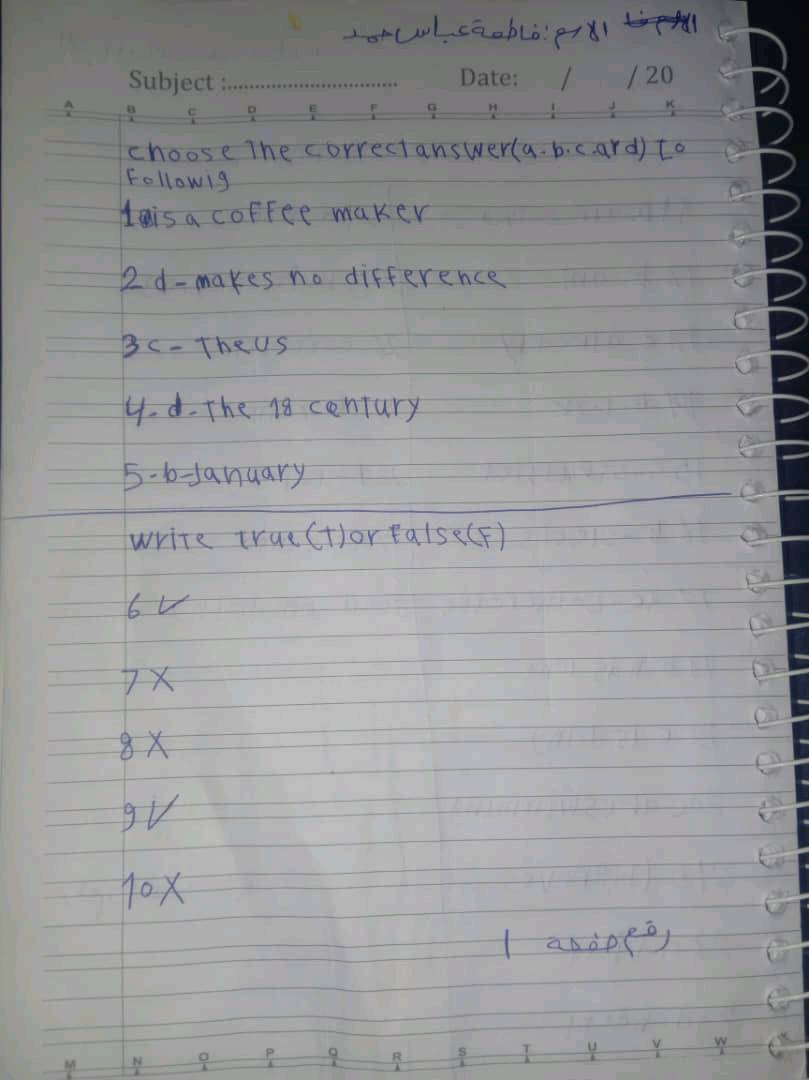 الاسم: فاطمة عباس حمد
Subject :.............................. Date: / / 20
A B C D E F G H I J K
choose The correct answer(a.b.c.ord) to
Followig
1 is a coffee maker
2 d-makes no difference
3 c- The US
4-d-The 18 century
5-b-January
write true(T) or False(F)
6 ✓
7 X
8 X
9 ✓
10 X
رقم صفحة 1
M N O P Q R S T U V W X